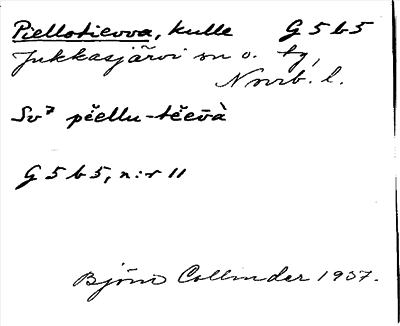 Piellotievva, kulle G5b5
Jukkasjärvi sn o. tg,
Norrb. l.
Sv⁷ pĕellu-tĕevà
G5b5, n:r 11
Björn Collinder 1937.